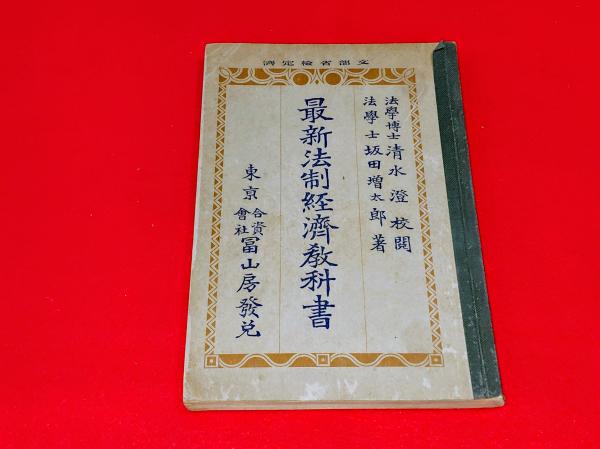 文部省檢定濟
法學博士 清水澄 校閱
法學士 坂田增太郎 著
最新法制經濟教科書
東京 合資會社 冨山房發兌